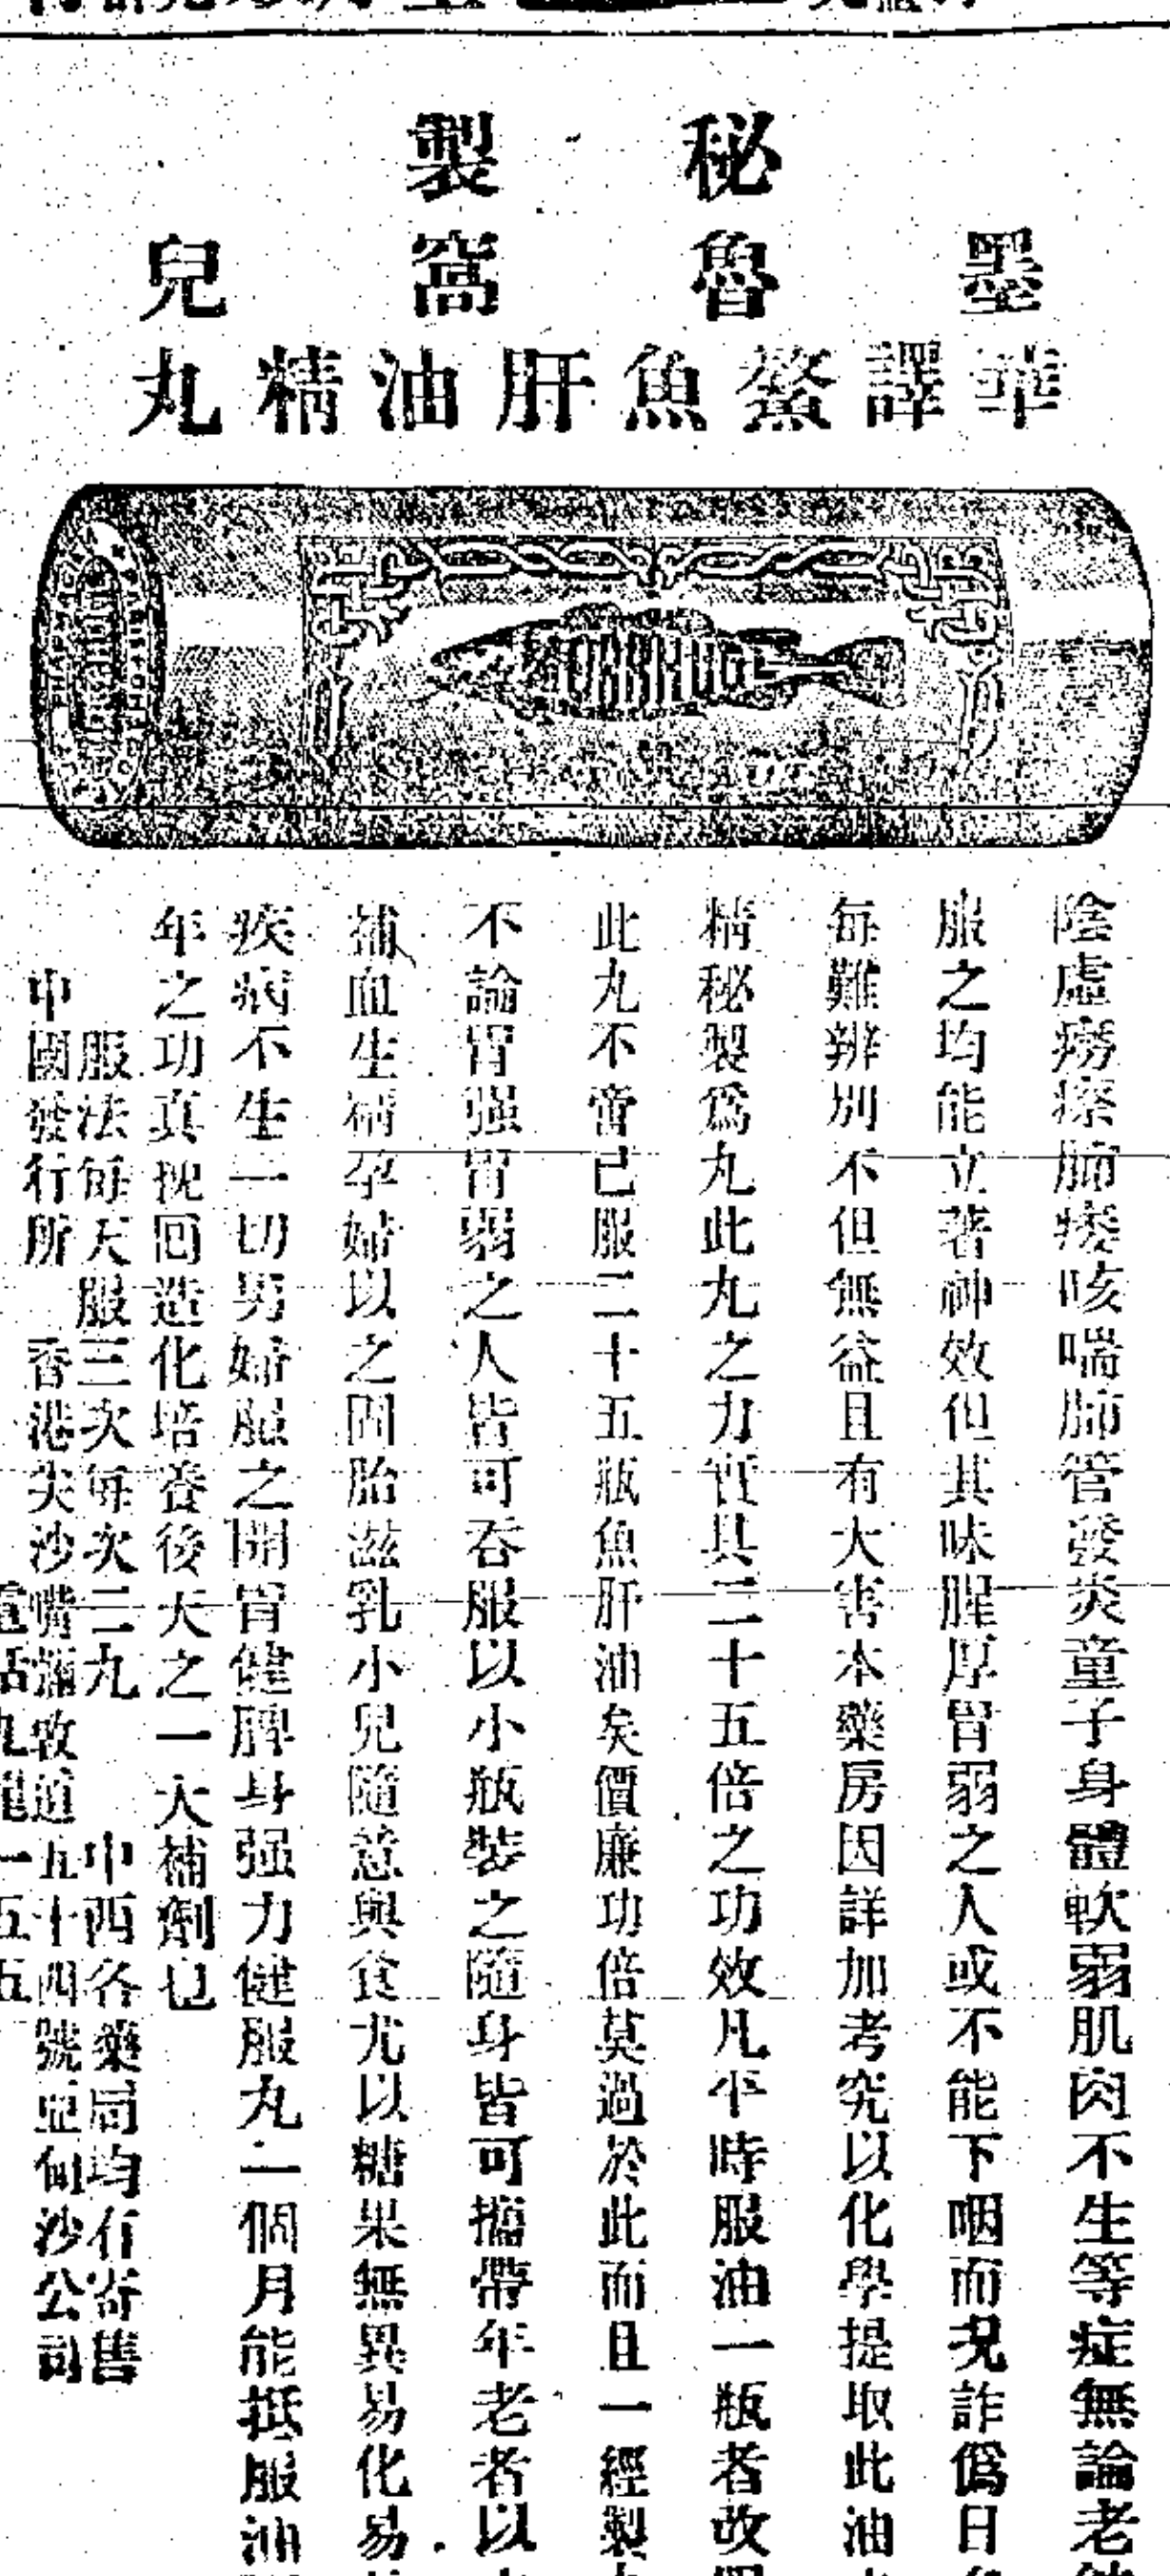 秘製
墨魯窩兒
華譯鰵魚肝油精丸
陰虛癆瘵肺痿咳喘肺管發炎童子身體軟弱肌肉不生等症無論老
服之均能立著神效但其味腥厚胃弱之人或不能下咽而況詐僞日
每難辨別不但無益且有大害本藥房因詳加考究以化學提取此油
精秘製爲丸此丸之力實具二十五倍之功效凡平時服油一瓶者改
此丸不啻已服二十五瓶魚肝油矣價廉功倍莫過於此而且一經製
不論胃强胃弱之人皆可吞服以小瓶裝之隨身皆可攜帶年老者以
補血生精孕婦以之固胎滋乳小兒隨意與食尤以糖果無異易化易
疾病不生一切男婦服之開胃健脾身强力健服丸二個月能抵服油
年之功真挽回造化培養後天之一大補劑也
服法每天服三次每次二丸 中西各藥局均有寄售
中國發行所 香港尖沙嘴 道五十四號亞甸沙公司
電話九龍一五五